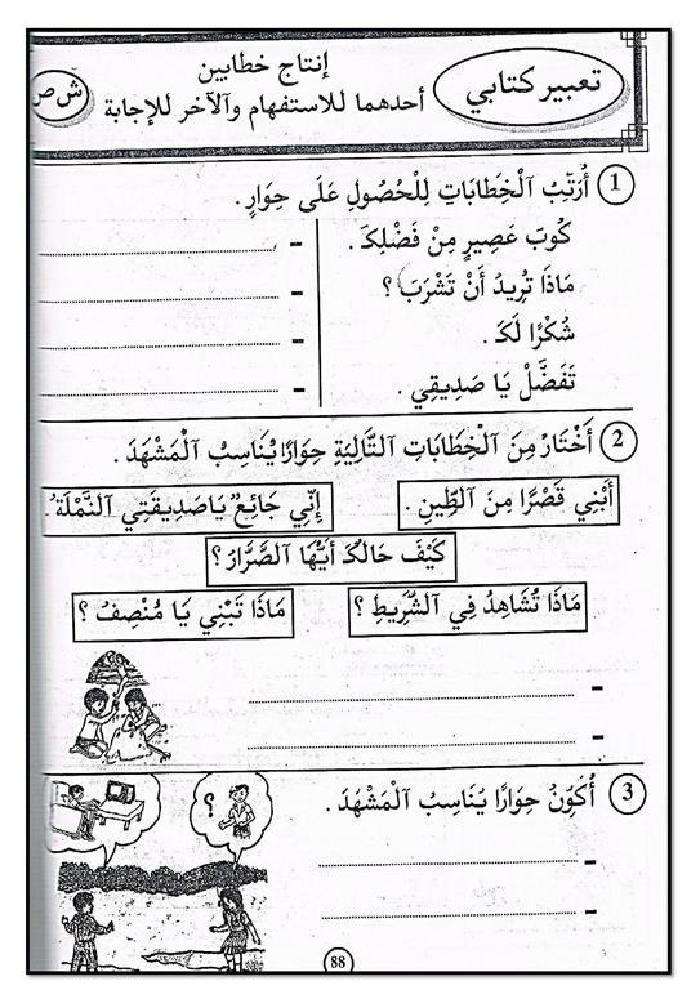 تعبير كتابي
إنتاج خطابين
أحدهما للاستفهام والآخر للإجابة
ش ص
1 أُرَتِّبُ ٱلْخِطَابَاتِ لِلْحُصُولِ عَلَى حِوَارٍ.
كُوبَ عَصِيرٍ مِنْ فَضْلِكَ.
مَاذَا تُرِيدُ أَنْ تَشْرَبَ؟
شُكْرًا لَكَ.
تَفَضَّلْ يَا صَدِيقِي.
2 أَخْتَارُ مِنَ ٱلْخِطَابَاتِ ٱلتَّالِيَةِ حِوَارًا يُنَاسِبُ ٱلْمَشْهَدَ.
أَبْنِي قَصْرًا مِنَ ٱلطِّينِ.
إِنِّي جَائِعٌ يَا صَدِيقَتِي ٱلنَّمْلَةَ.
كَيْفَ حَالُكَ أَيُّهَا ٱلصَّرَّارُ؟
مَاذَا تُشَاهِدُ فِي ٱلشَّرِيطِ؟
مَاذَا تَبْنِي يَا مُنْصِفُ؟
3 أُكَوِّنُ حِوَارًا يُنَاسِبُ ٱلْمَشْهَدَ.
؟
88